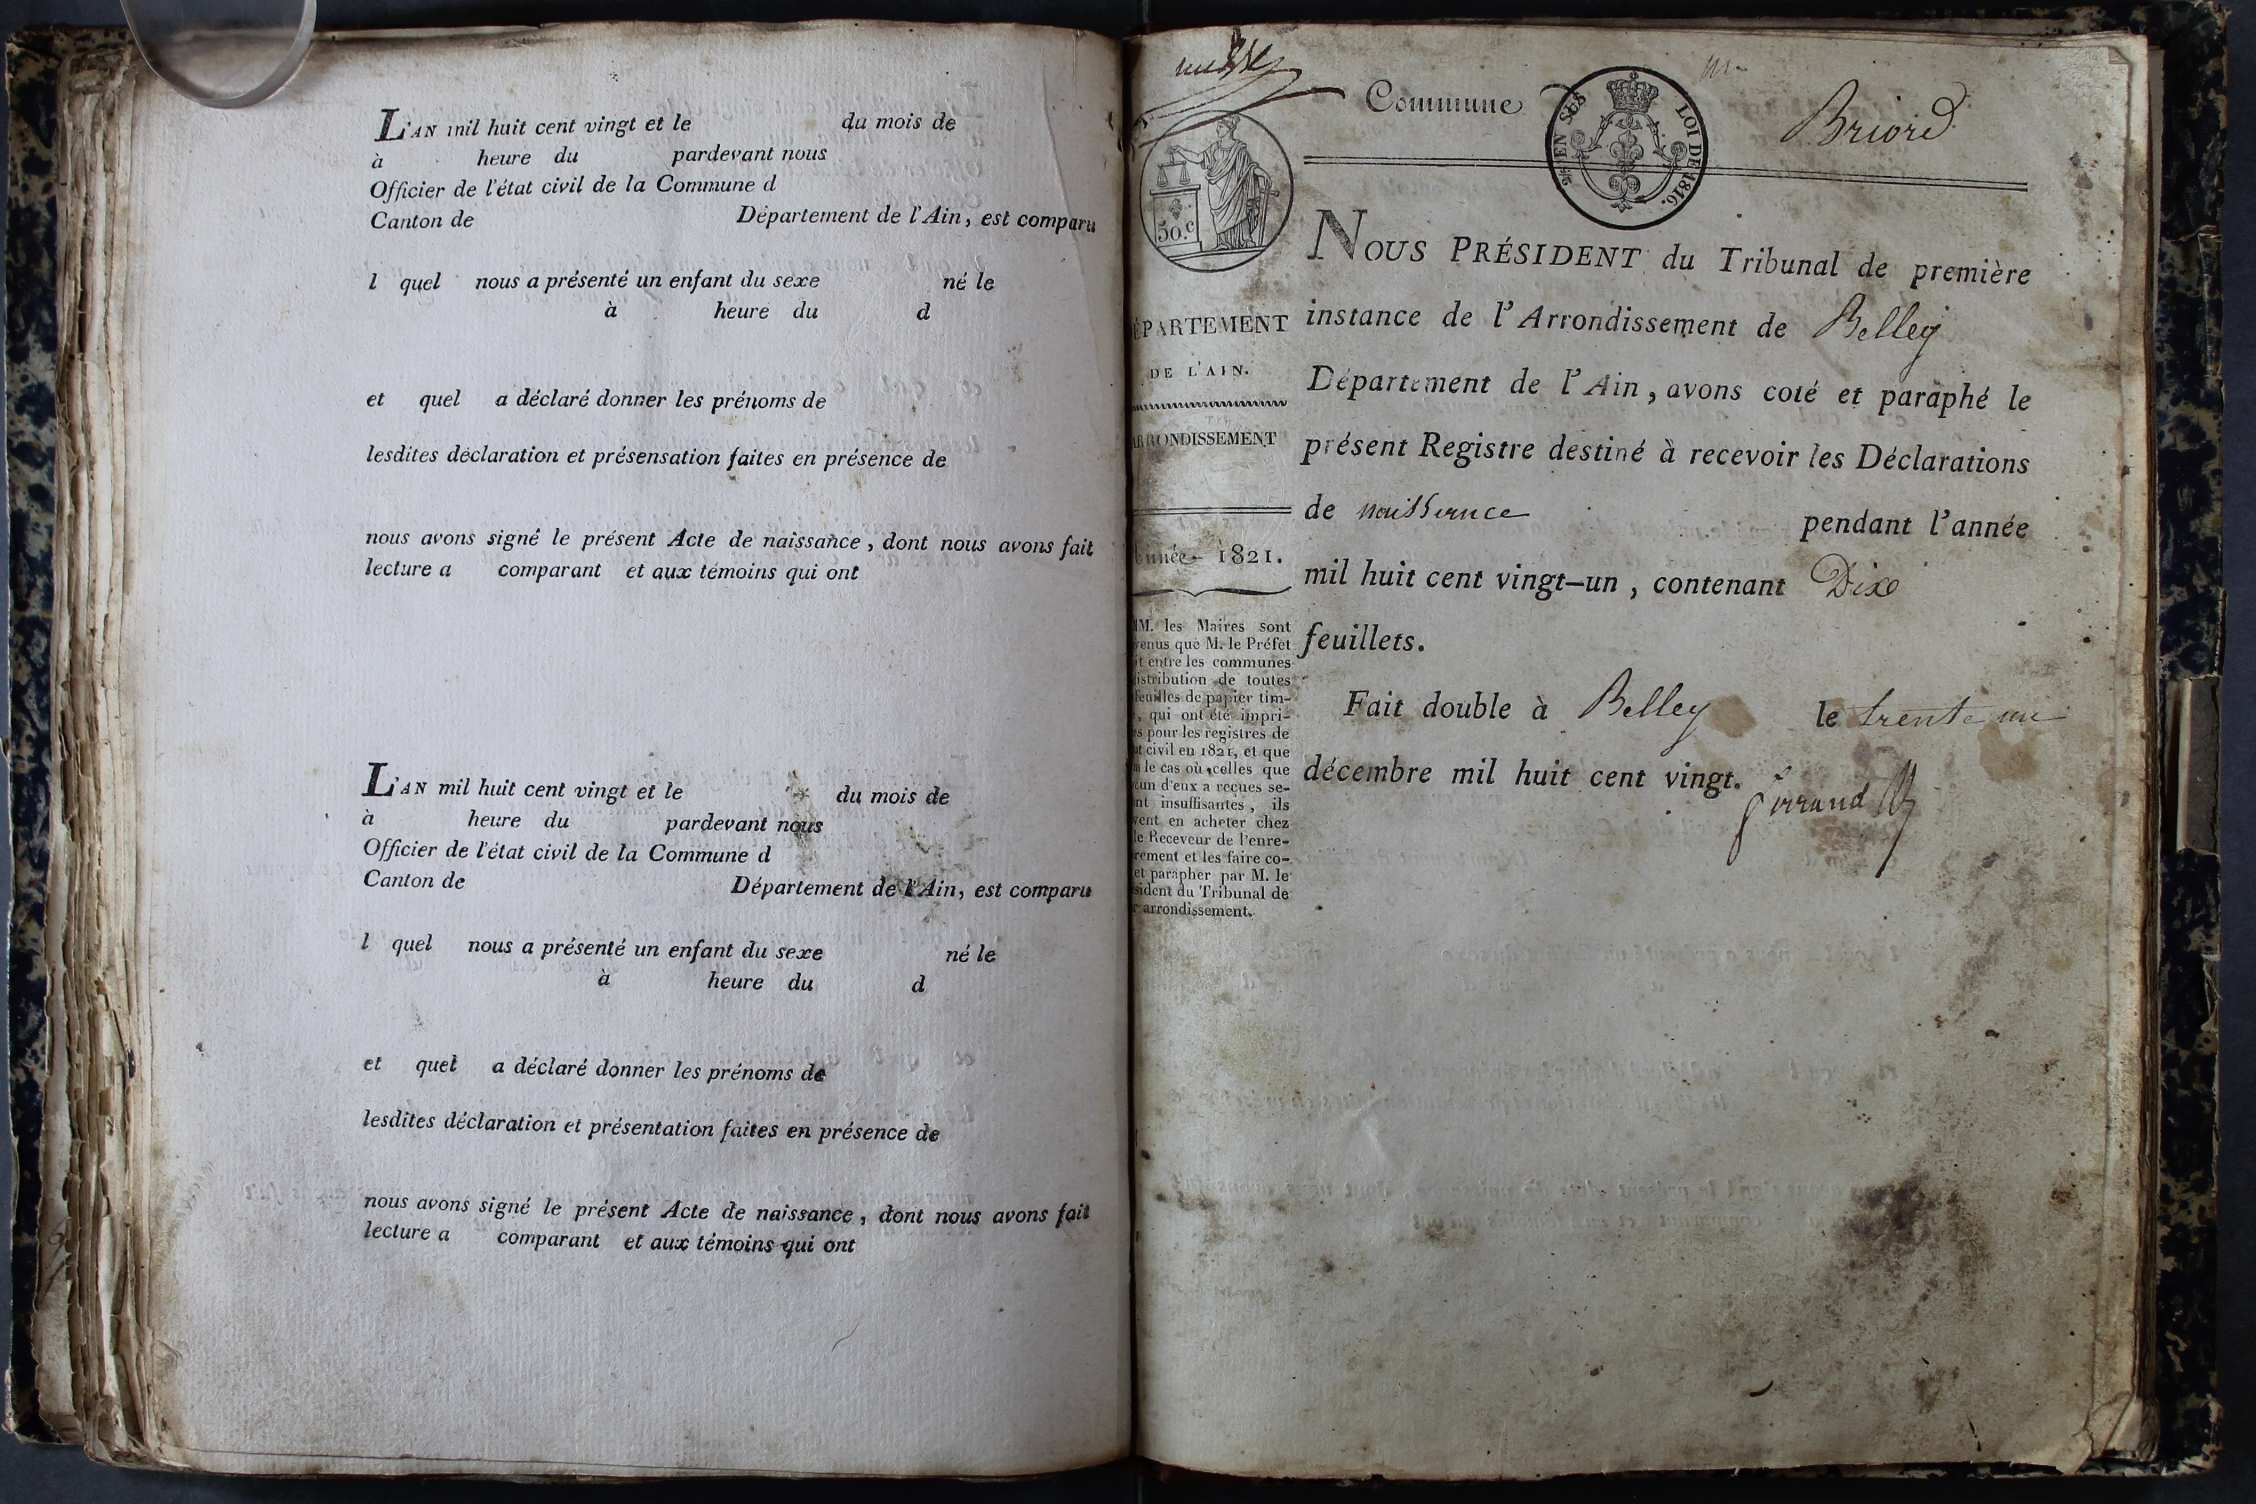 L'AN mil huit cent vingt et le du mois de
à heure du pardevant nous
Officier de l'état civil de la Commune d
Canton de Département de l'Ain, est comparu
l quel nous a présenté un enfant du sexe né le
à heure du d
et quel a déclaré donner les prénoms de
lesdites déclaration et présensation faites en présence de
nous avons signé le présent Acte de naissance, dont nous avons fait
lecture a comparant et aux témoins qui ont
L'AN mil huit cent vingt et le du mois de
à heure du pardevant nous
Officier de l'état civil de la Commune d
Canton de Département de l'Ain, est comparu
l quel nous a présenté un enfant du sexe né le
à heure du d
et quel a déclaré donner les prénoms de
lesdites déclaration et présentation faites en présence de
nous avons signé le présent Acte de naissance, dont nous avons fait
lecture a comparant et aux témoins qui ont
Commune Briord
EN SUS LOI DE 1816.
50.c
ÉPARTEMENT
DE L'AIN.
ARRONDISSEMENT
Année 1821.
MM. les Maires sont
venus que M. le Préfet
it entre les communes
istribution de toutes
feuilles de papier tim-
, qui ont été impri-
s pour les registres de
at civil en 1821, et que
le cas où celles que
cun d'eux a reçues se-
nt insuffisantes, ils
vent en acheter chez
le Receveur de l'enre-
rement et les faire co-
et parapher par M. le
sident du Tribunal de
r arrondissement.
NOUS PRÉSIDENT du Tribunal de première
instance de l'Arrondissement de Belley
Département de l'Ain, avons coté et paraphé le
présent Registre destiné à recevoir les Déclarations
de naissance pendant l'année
mil huit cent vingt-un, contenant Dix
feuillets.
Fait double à Belley le trente un
décembre mil huit cent vingt.